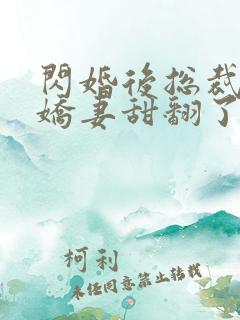 閃婚後總裁
嬌妻甜翻了
柯利
未經同意禁止轉載